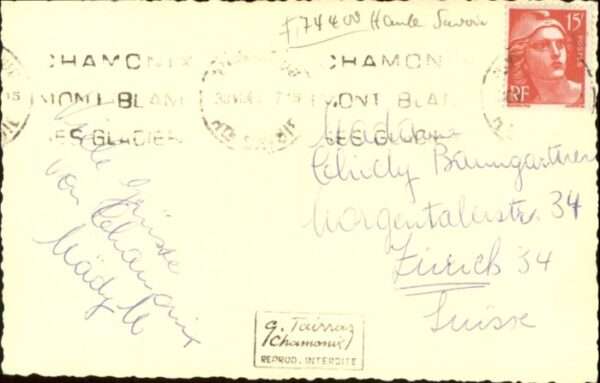 F74400 Haute Savoie
15F
POSTES
RF
CHAMONIX
MONT-BLANC
SES GLACIERS
CHAMONIX
MONT BLANC
SES GLACIERS
Viele Grüsse
von Chamonix
Mädyle
Madame
Baumgartner
Morgentalerstr. 34
Zürich 34
Suisse
G. Tairraz
(Chamonix)
REPROD. INTERDITE